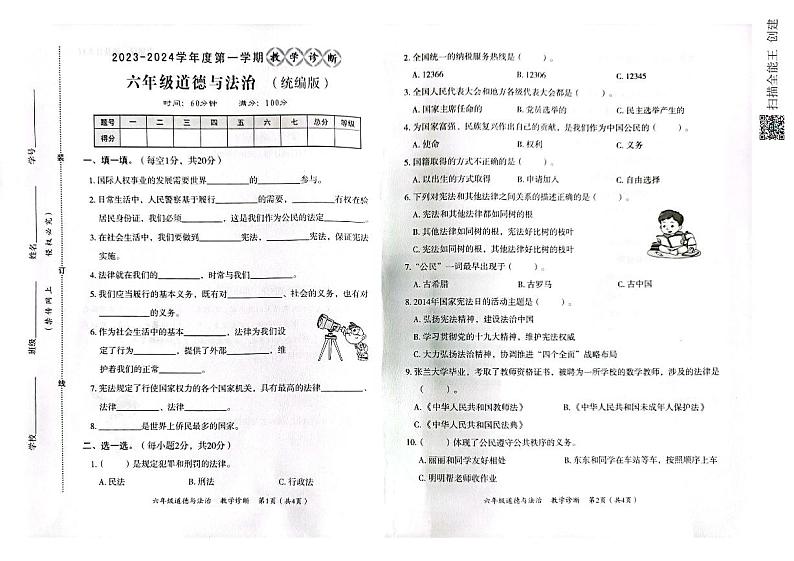 2023-2024学年度第一学期教学诊断
六年级道德与法治 （统编版）
时间：60分钟 满分：100分
题号 一 二 三 四 五 六 七 总分 等级
得分
一、填一填。（每空1分，共20分）
1. 国际人权事业的发展需要世界________的________参与。
2. 日常生活中，人民警察基于履行________的需要，________有权在验
居民身份证，我们必须________，这是我们作为公民的法定________。
3. 在社会生活中，我们要做到________宪法，________宪法，保证宪法
实施。
4. 法律就在我们的________，时常与我们________。
5. 我们应当履行的基本义务，既有对________、社会的义务，也有对
________的义务。
6. 作为社会生活中的基本________，法律为我们设
定了行为________，提供了外部________，维
护着我们的正常________。
7. 宪法规定了行使国家权力的各个国家机关，具有最高的法律________、
法律________、法律________。
8. ________是世界上侨民最多的国家。
二、选一选。（每小题2分，共20分）
1.（ ）是规定犯罪和刑罚的法律。
A. 民法 B. 刑法 C. 行政法
六年级道德与法治 教学诊断 第1页（共4页）
学校________ 班级________ 姓名________ 学号________
（禁传网上 侵权必究）
装 订 线
2. 全国统一的纳税服务热线是（ ）。
A. 12366 B. 12306 C. 12345
3. 全国人民代表大会和地方各级代表大会都是（ ）。
A. 国家主席任命的 B. 党员选举的 C. 民主选举产生的
4. 为国家富强，民族复兴作出自己的贡献，是我们作为中国公民的（ ）。
A. 使命 B. 权利 C. 义务
5. 国籍取得的方式不正确的是（ ）。
A. 以出生的方式取得 B. 申请加入 C. 自由选择
6. 下列对宪法和其他法律之间关系的描述正确的是（ ）。
A. 宪法和其他法律都如同树的根
B. 其他法律如同树的根，宪法好比树的枝叶
C. 宪法如同树的根，其他法律好比树的枝叶
7. “公民”一词最早出现于（ ）。
A. 古希腊 B. 古罗马 C. 古中国
8. 2014年国家宪法日的活动主题是（ ）。
A. 弘扬宪法精神，建设法治中国
B. 学习贯彻党的十九大精神，维护宪法权威
C. 大力弘扬法治精神，协调推进“四个全面”战略布局
9. 张兰大学毕业，考取了教师资格证书，被聘为一所学校的数学教师，涉及的法律是
（ ）。
A.《中华人民共和国教师法》 B.《中华人民共和国未成年人保护法》
C.《中华人民共和国民法典》
10.（ ）体现了公民遵守公共秩序的义务。
A. 丽丽和同学友好相处 B. 东东和同学等车站乘车，按照顺序上车
C. 明明帮老师收作业
六年级道德与法治 教学诊断 第2页（共4页）
扫描全能王 创建